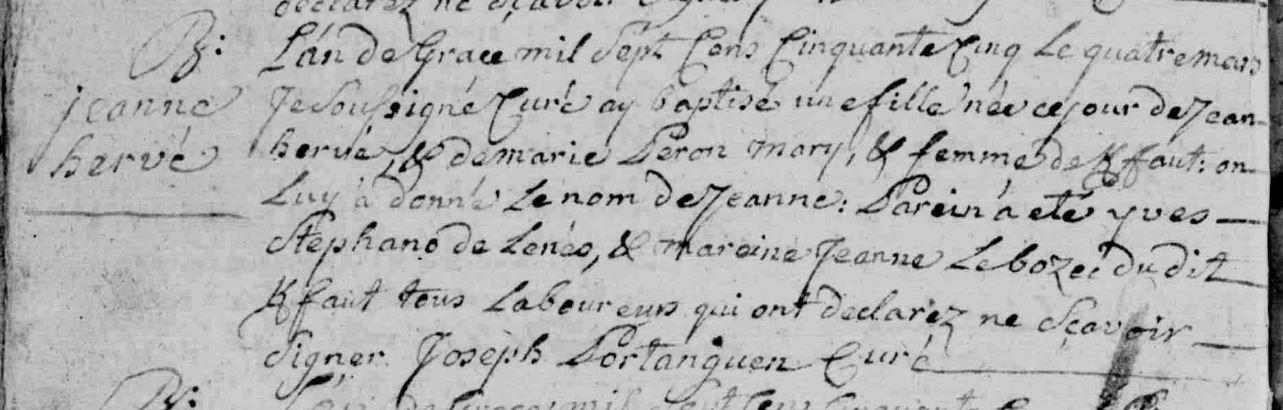 declarez ne sçavoir signer
B: L'an de Grace mil Sept Cens Cinquante Cinq Le quatre mars
jeanne Je Soussigné Curé ay baptisé une fille née ce jour de Jean
hervé hervé, & de marie Peron mary, & femme de Kfaut: on
Luy à donné Le nom de Jeanne: Parein à eté yves
Stephano de Lenés, & mareine Jeanne Le bozec du dit
Kfaut tous Laboureurs qui ont declarez ne Sçavoir
Signer Joseph Portanguen Curé
B: L'an de Grace mil Sept Cens Cinquante